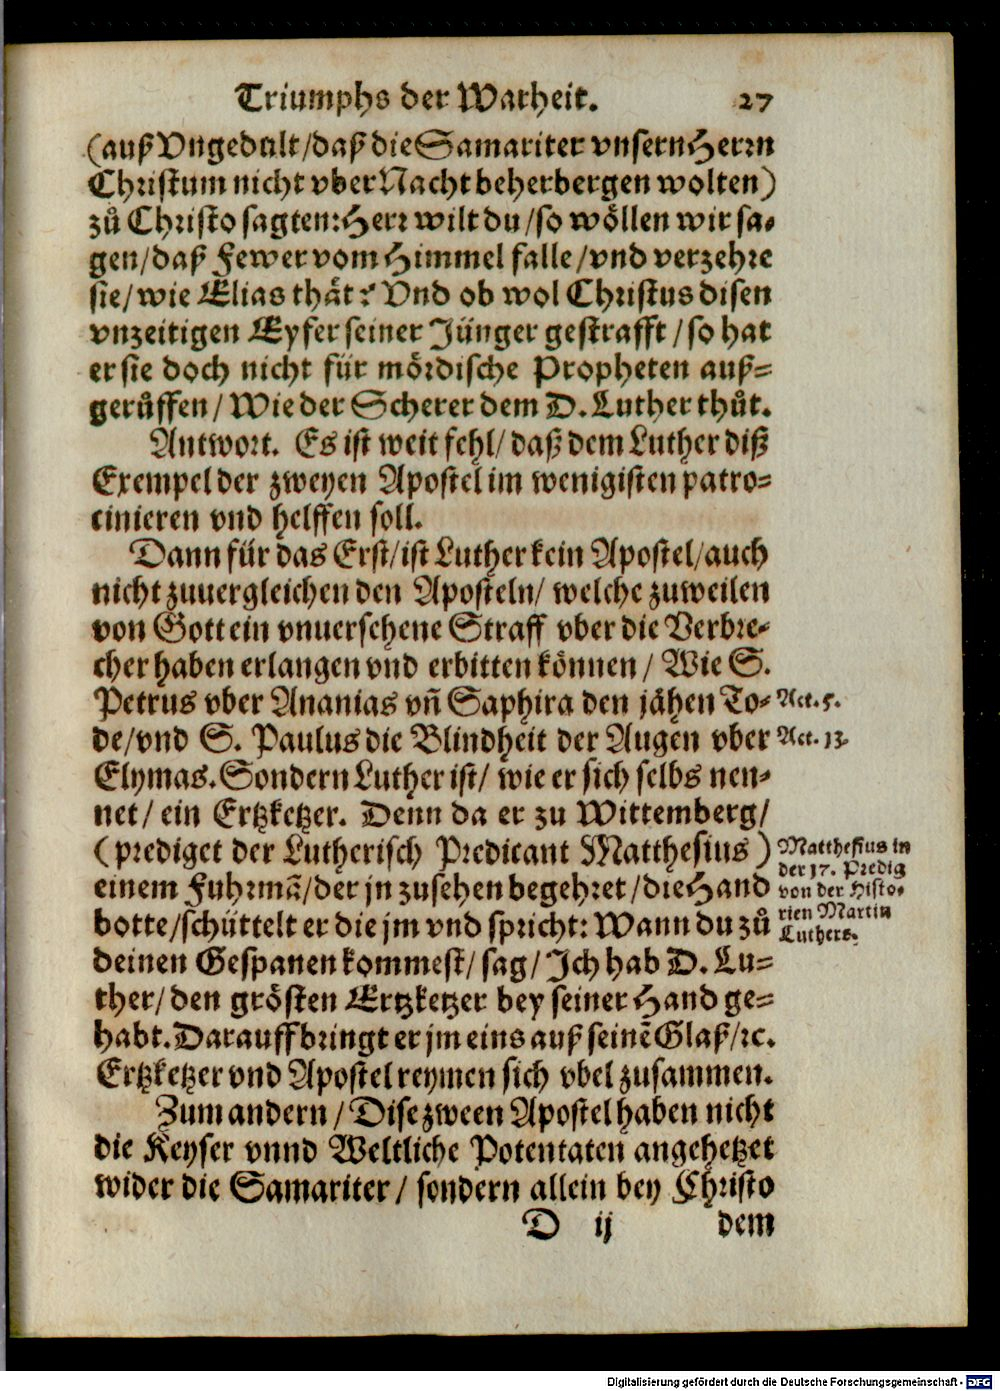 Triumphs der Warheit. 27
(auß Vngedult/daß die Samariter vnsern Herrn
Christum nicht vber Nacht beherbergen wolten)
zů Christo sagten: Herr wilt du/so wöllen wir sa-
gen/daß Fewer vom Himmel falle/vnd verzehre
sie/wie Elias thät? Vnd ob wol Christus disen
vnzeitigen Eyfer seiner Jünger gestrafft/so hat
er sie doch nicht für mördische Propheten auß-
gerůffen/Wie der Scherer dem D. Luther thůt.
Antwort. Es ist weit fehl/daß dem Luther diß
Exempel der zweyen Apostel im wenigisten patro-
cinieren vnd helffen soll.
Dann für das Erst/ist Luther kein Apostel/auch
nicht zuuergleichen den Aposteln/welche zuweilen
von Gott ein vnuersehene Straff vber die Verbre-
cher haben erlangen vnd erbitten können/Wie S.
Petrus vber Ananias vñ Saphira den jähen To- Act. 5.
de/vnd S. Paulus die Blindheit der Augen vber Act. 13.
Elymas. Sondern Luther ist/wie er sich selbs nen-
net/ein Ertzketzer. Denn da er zu Wittemberg/
(prediget der Lutherisch Predicant Matthesius)
einem Fuhrmã/der jn zusehen begehret/die Hand
botte/schüttelt er die jm vnd spricht: Wann du zů
deinen Gespanen kommest/sag/Ich hab D. Lu-
ther/den grösten Ertzketzer bey seiner Hand ge-
habt. Darauff bringt er jm eins auß seinẽ Glaß/ꝛc.
Ertzketzer vnd Apostel reymen sich vbel zusammen.
Matthesius in
der 17. Predig
von der Histo-
rien Martin
Luthers.
Zum andern/Dise zween Apostel haben nicht
die Keyser vnnd Weltliche Potentaten angehetzet
wider die Samariter/sondern allein bey Christo
D ij dem
Digitalisierung gefördert durch die Deutsche Forschungsgemeinschaft - DFG